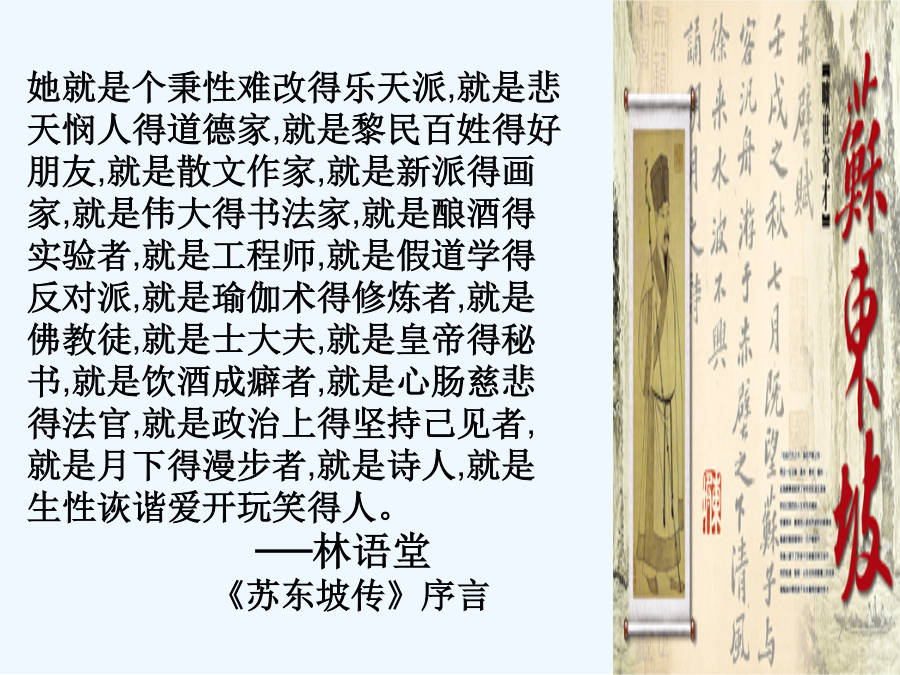 她就是个秉性难改得乐天派,就是悲
天悯人得道德家,就是黎民百姓得好
朋友,就是散文作家,就是新派得画
家,就是伟大得书法家,就是酿酒得
实验者,就是工程师,就是假道学得
反对派,就是瑜伽术得修炼者,就是
佛教徒,就是士大夫,就是皇帝得秘
书,就是饮酒成癖者,就是心肠慈悲
得法官,就是政治上得坚持己见者,
就是月下得漫步者,就是诗人,就是
生性诙谐爱开玩笑得人。
──林语堂
《苏东坡传》序言
蘇東坡
赤壁賦
壬戌之秋七月既望蘇子与
客汎舟游于赤壁之下清風
徐来水波不興
誦明月之詩